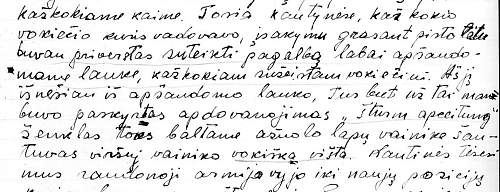 kažkokiame kaime. Toria kautynėse, kaž kokio
vokiečio kuris vadovavo, įsakymu grasant pistoletu
buvau priverstas suteikti pagalbą labai apšaudo-
mame lauke, kažkokiam sužeistam vokiečiui. Aš jį
išnešiau iš apšaudomo lauko, Tur but už tai man
buvo paskyrtas apdovanojimas „Sturm apceitung"
ženklas baltame ąžuolo lapų vainike šau-
tuvas viršuj vainiko vokiška višta. Kautinės tęsėsi
mus raudonoji armija vyjo iki naujų pozicijų